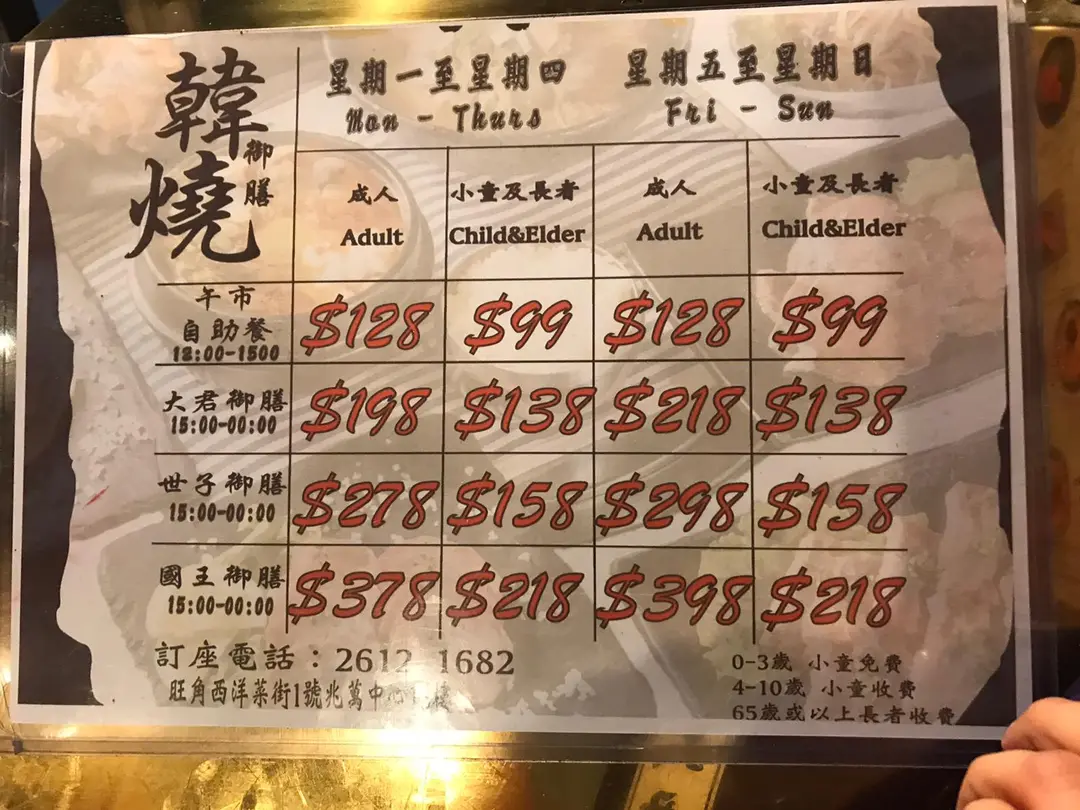 韓燒
御膳
星期一至星期四 星期五至星期日
Mon - Thurs Fri - Sun
成人 小童及長者 成人 小童及長者
Adult Child&Elder Adult Child&Elder
午市
自助餐
12:00-1500
$128 $99 $128 $99
大君御膳
15:00-00:00
$198 $138 $218 $138
世子御膳
15:00-00:00
$278 $158 $298 $158
國王御膳
15:00-00:00
$378 $218 $398 $218
訂座電話：2612 1682
旺角西洋菜街1號兆萬中心 樓
0-3歲 小童免費
4-10歲 小童收費
65歲或以上長者收費